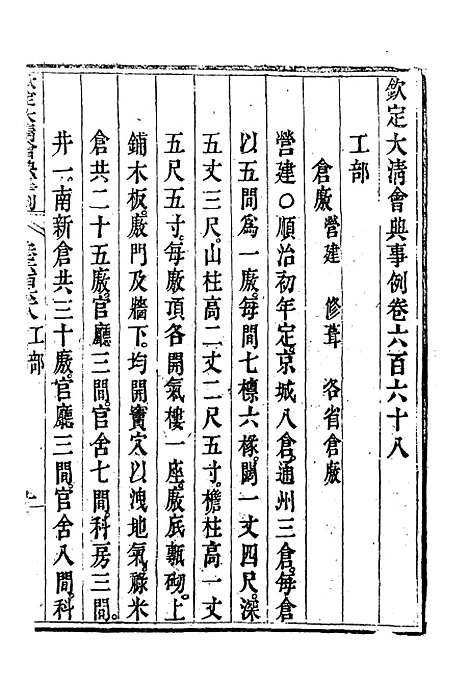 欽定大清會典事例卷六百六十八
工部
倉廠 營建 修葺 各省倉廠
營建○順治初年定京城八倉通州三倉每倉
以五間爲一廠每間七檁六椽闊一丈四尺深
五丈三尺山柱高二丈二尺五寸檐柱高一丈
五尺五寸每廠頂各開氣樓一座廠底甎砌上
鋪木板廠門及牆下均開竇穴以洩地氣祿米
倉共二十五廠官廳三間官舍七間科房三間
井一南新倉共三十廠官廳三間官舍八間科
工部